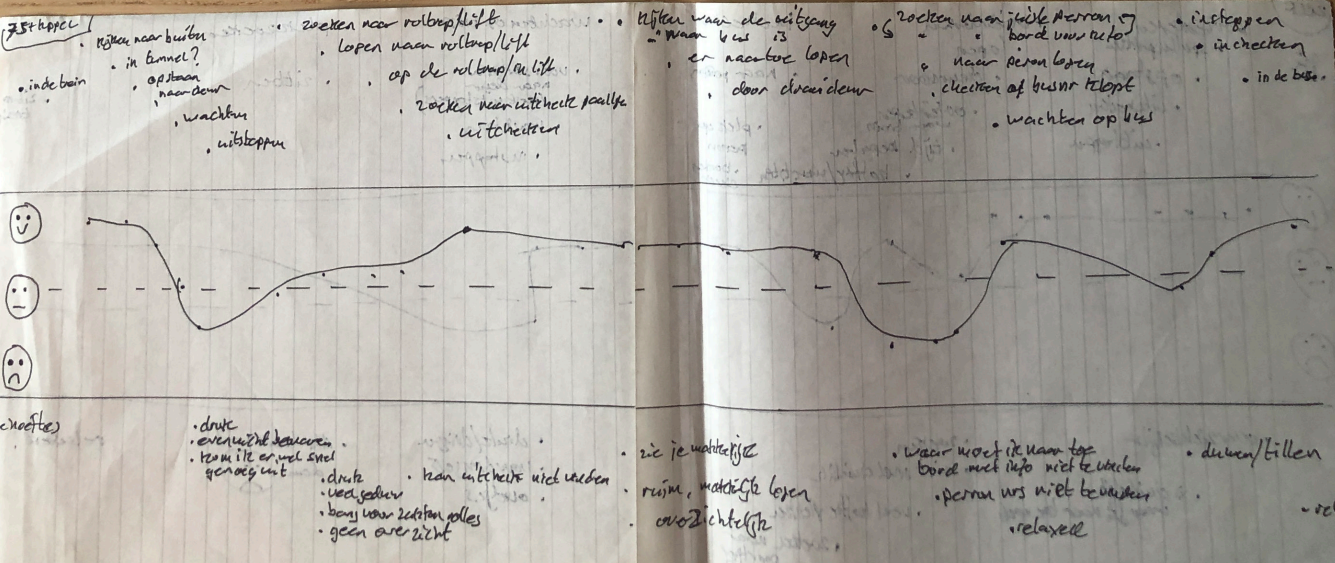 • in de trein
• kijken naar buiten
• in tunnel?
• opstaan
• naar deur
• wachten
• uitstappen
• zoeken naar roltrap/lift
• lopen naar roltrap/lift
• op de roltrap/in lift
• zoeken naar uitcheck paaltje
• uitchecken
• kijken waar de uitgang
" waar bus is
• er naartoe lopen
• door draaideur
• zoeken naar juiste perron
" " bord voor info
" naar peron lopen
• checken of busnr klopt
• wachten op bus
• instappen
• inchecken
• in de bus
• druk
• evenwicht bewaren
• kom ik er wel snel
genoeg uit
• druk
• veel gedoe
• bang voor zakkenrollers
• geen overzicht
• kan uitcheck niet vinden
• zie je makkelijk
• ruim, makkelijk lopen
• overzichtelijk
• waar moet ik naar toe
bord met info niet te vinden
• perron nrs niet te vinden
• relaxed
• duwen/tillen